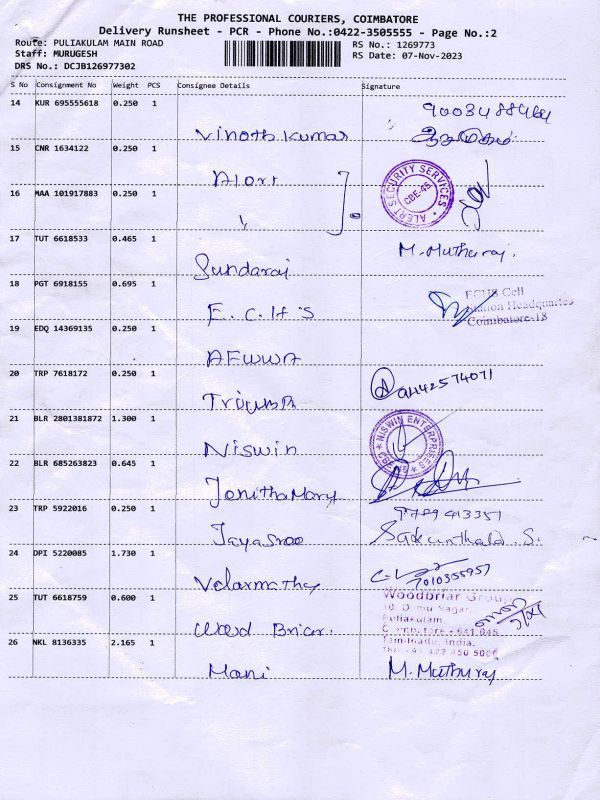 THE PROFESSIONAL COURIERS, COIMBATORE
Delivery Runsheet - PCR - Phone No.:0422-3505555 - Page No.:2
Route: PULIAKULAM MAIN ROAD
RS No.: 1269773
Staff: MURUGESH
RS Date: 07-Nov-2023
DRS No.: DCJB126977302
S No Consignment No Weight PCS Consignee Details Signature
14 KUR 695555618 0.250 1 Vinoth kumar
15 CNR 1634122 0.250 1 Alert
ALERT SECURITY SERVICES CBE-45
16 MAA 101917883 0.250 1 "
17 TUT 6618533 0.465 1 Sundaraj M. Muthuraj.
18 PGT 6918155 0.695 1 E.C.H.S
ECHS Cell
Station Headquarters
Coimbatore-18
19 EDQ 14369135 0.250 1 AEWWA
20 TRP 7618172 0.250 1 Triumph
21 BLR 2801381872 1.300 1 Niswin
NISWIN ENTERPRISES
22 BLR 685263823 0.645 1 Jenitha Mary
23 TRP 5922016 0.250 1 Jayasree
9789413351
Sakunthala . S.
24 DPI 5220085 1.730 1 Velarmathy
7010355957
25 TUT 6618759 0.600 1 Wood Briar.
Woodbriar Group
Puliakulam,
Coimbatore - 641 045
Tamilnadu, India.
26 NKL 8136335 2.165 1 Mani M. Muthuraj